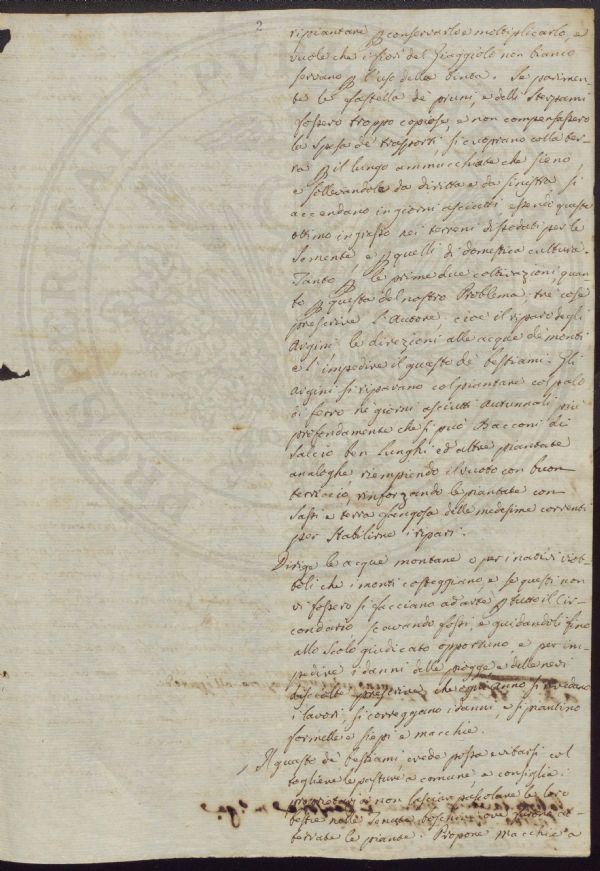 2
ripiantare p conservarlo e moltiplicarlo, e
vuole che i fiori del Giaggiolo non bianco
servano p l'uso della tinta. Se parimen-
te le fastella de' pruni, e delli Sterpami
fossero troppo copiose, e non compensassero
la spesa de' trasporti, si cuoprano colla ter-
ra p il lungo ammucchiate che sieno,
e sollevandole da diritta e da sinistra si
accendano in giorni asciutti essendo questo
ottimo ingrasso nei terreni dissodati per le
Semente e p quelli di domestica cultura.
Tanto p le prime due coltivazioni quan-
to p questa del nostro Problema tre cose
prescrive l'Autore, cioè il riparo degli
Argini le direzioni alle acque de' monti
e l'impedire il guasto de' bestiami. Gli
Argini si riparano col piantare col palo
di ferro ne' giorni asciutti Autunnali più
profondamente che si può Bacconi di
Salcio ben lunghi ed altre piantate
analoghe riempiendo il vuoto con buon
terriccio, rinforzando le piantate con
Sassi e terra delle medesime correnti
per stabilirne i ripari.
Dirige le acque montane o per i nativi viot-
toli che i monti costeggiano, e se questi non
vi fossero si facciano ad arte p tutto il cir-
condario scavando fossi, e guidandoli fino
allo Scolo giudicato opportuno, e per im-
pedire i danni delle piogge e delle nevi
disciolte prescrive che ogni anno si rivedano
i lavori, si correggano i danni, e si piantino
formelle e siepi e macchie.
Il guasto de' bestiami, crede possa evitarsi col
togliere le pasture a comune e consiglia i
proprietari a non lasciar pascolare le loro
bestie nelle Tenute boschive ove
le piante. Propone macchie a